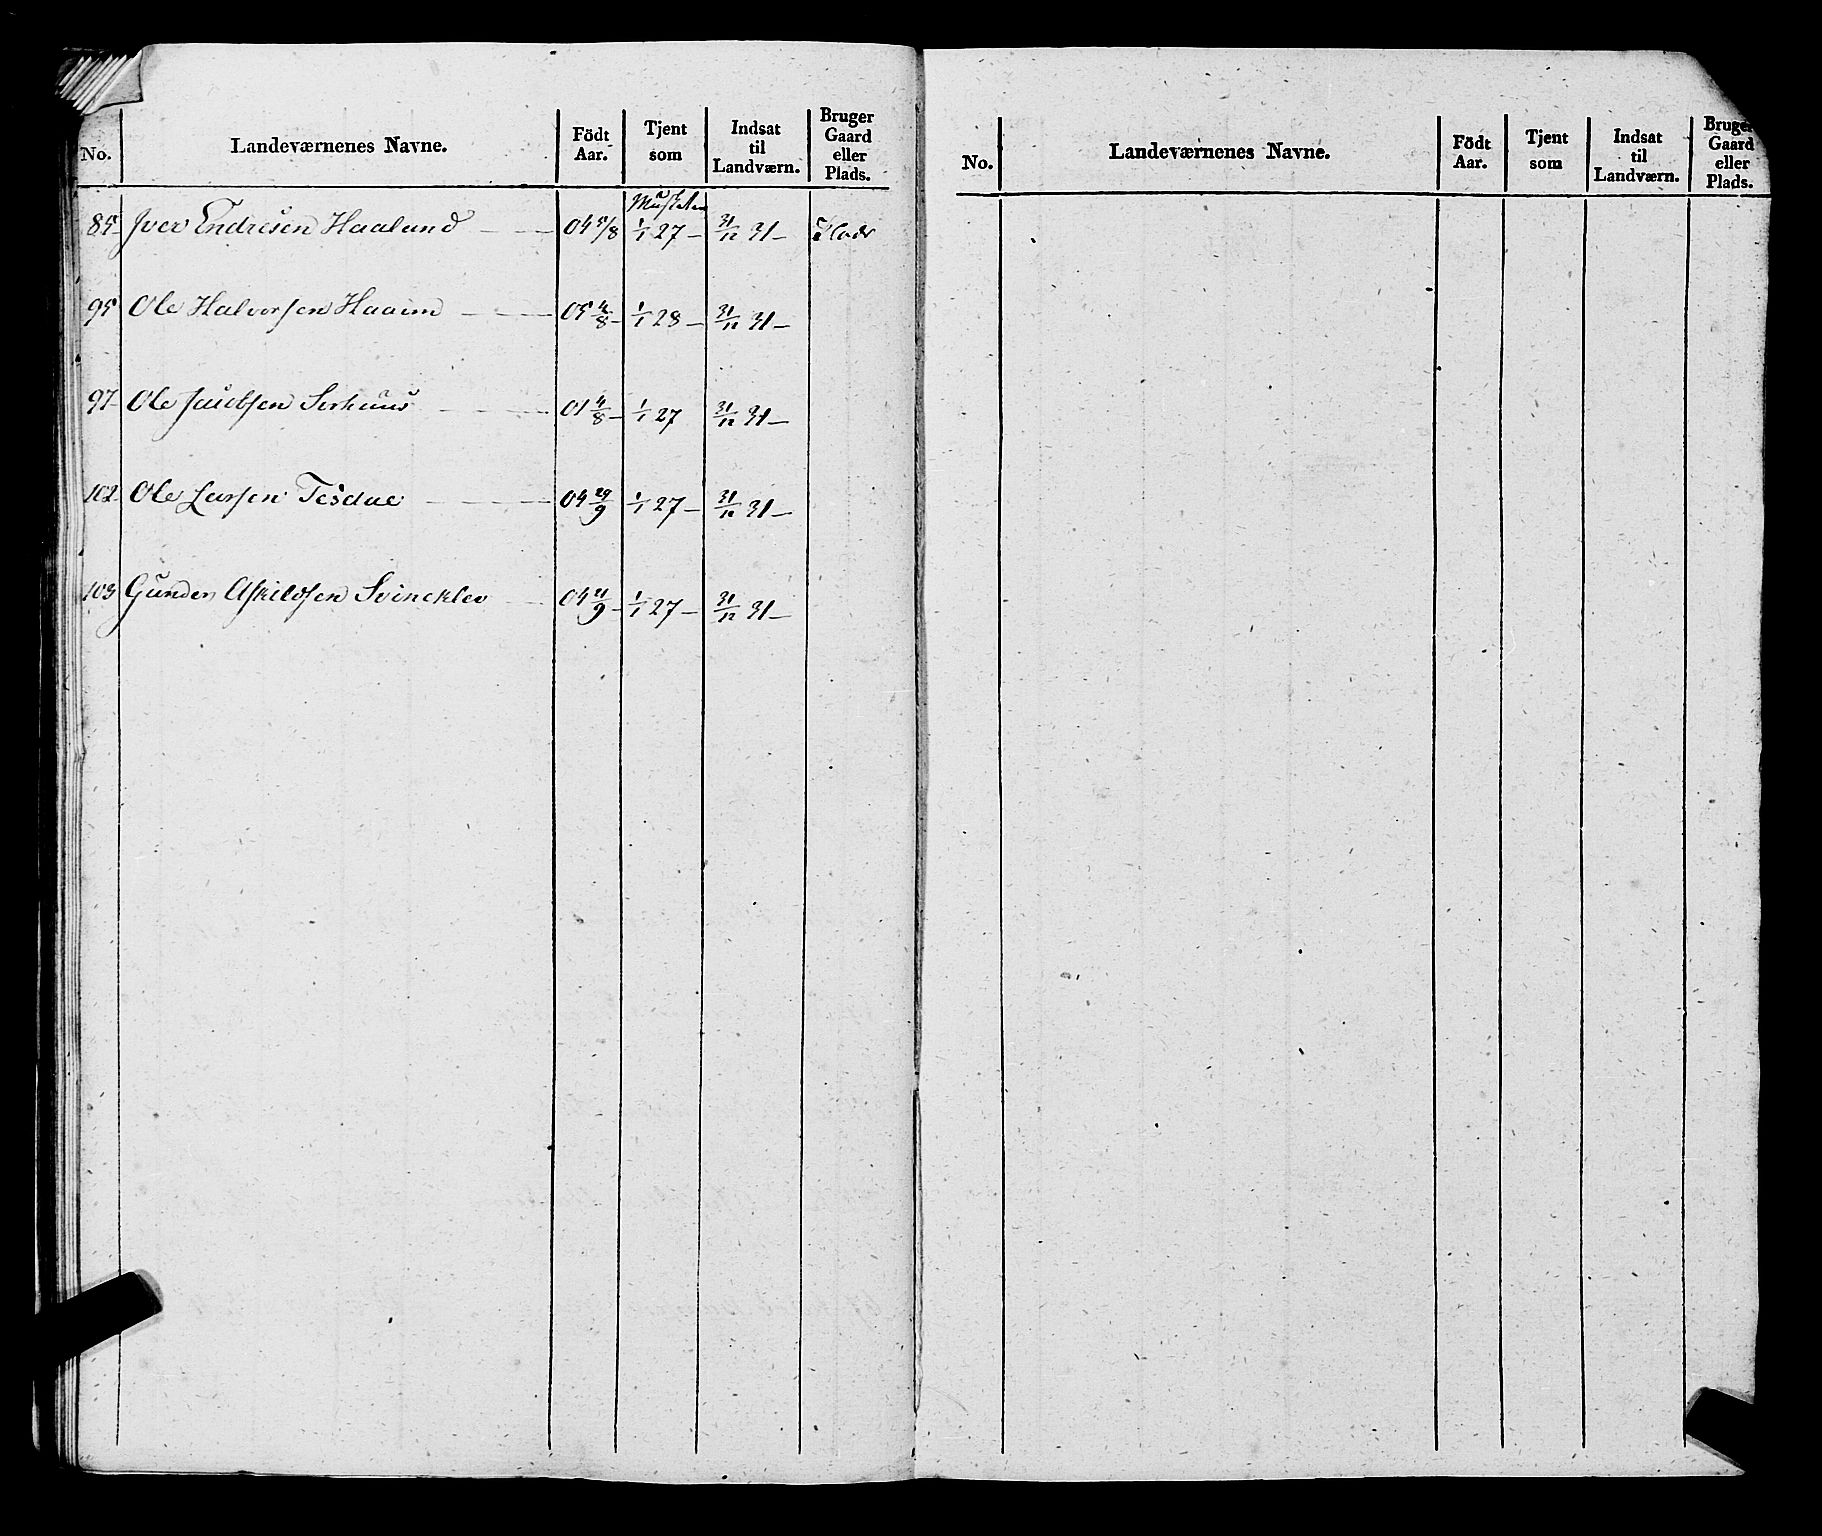 No. Landeværnenes Navne. Födt Aar. Tjent som Indsat til Landværn. Bruger Gaard eller Plads.
85 Iver Endresen Haaland 04 5/8 1/1 27 31/12 31
95 Ole Halvorsen Haaim 05 4/8 1/1 28 31/12 31
97 Ole Jacobsen 01 4/8 1/1 27 31/12 31
102 Ole Larsen Tesdal 04 29/9 1/1 27 31/12 31
103 Gunder Askildsen Svineklev 04 21/9 1/1 27 31/12 31
No. Landeværnenes Navne. Födt Aar. Tjent som Indsat til Landværn. Bruger Gaard eller Plads.